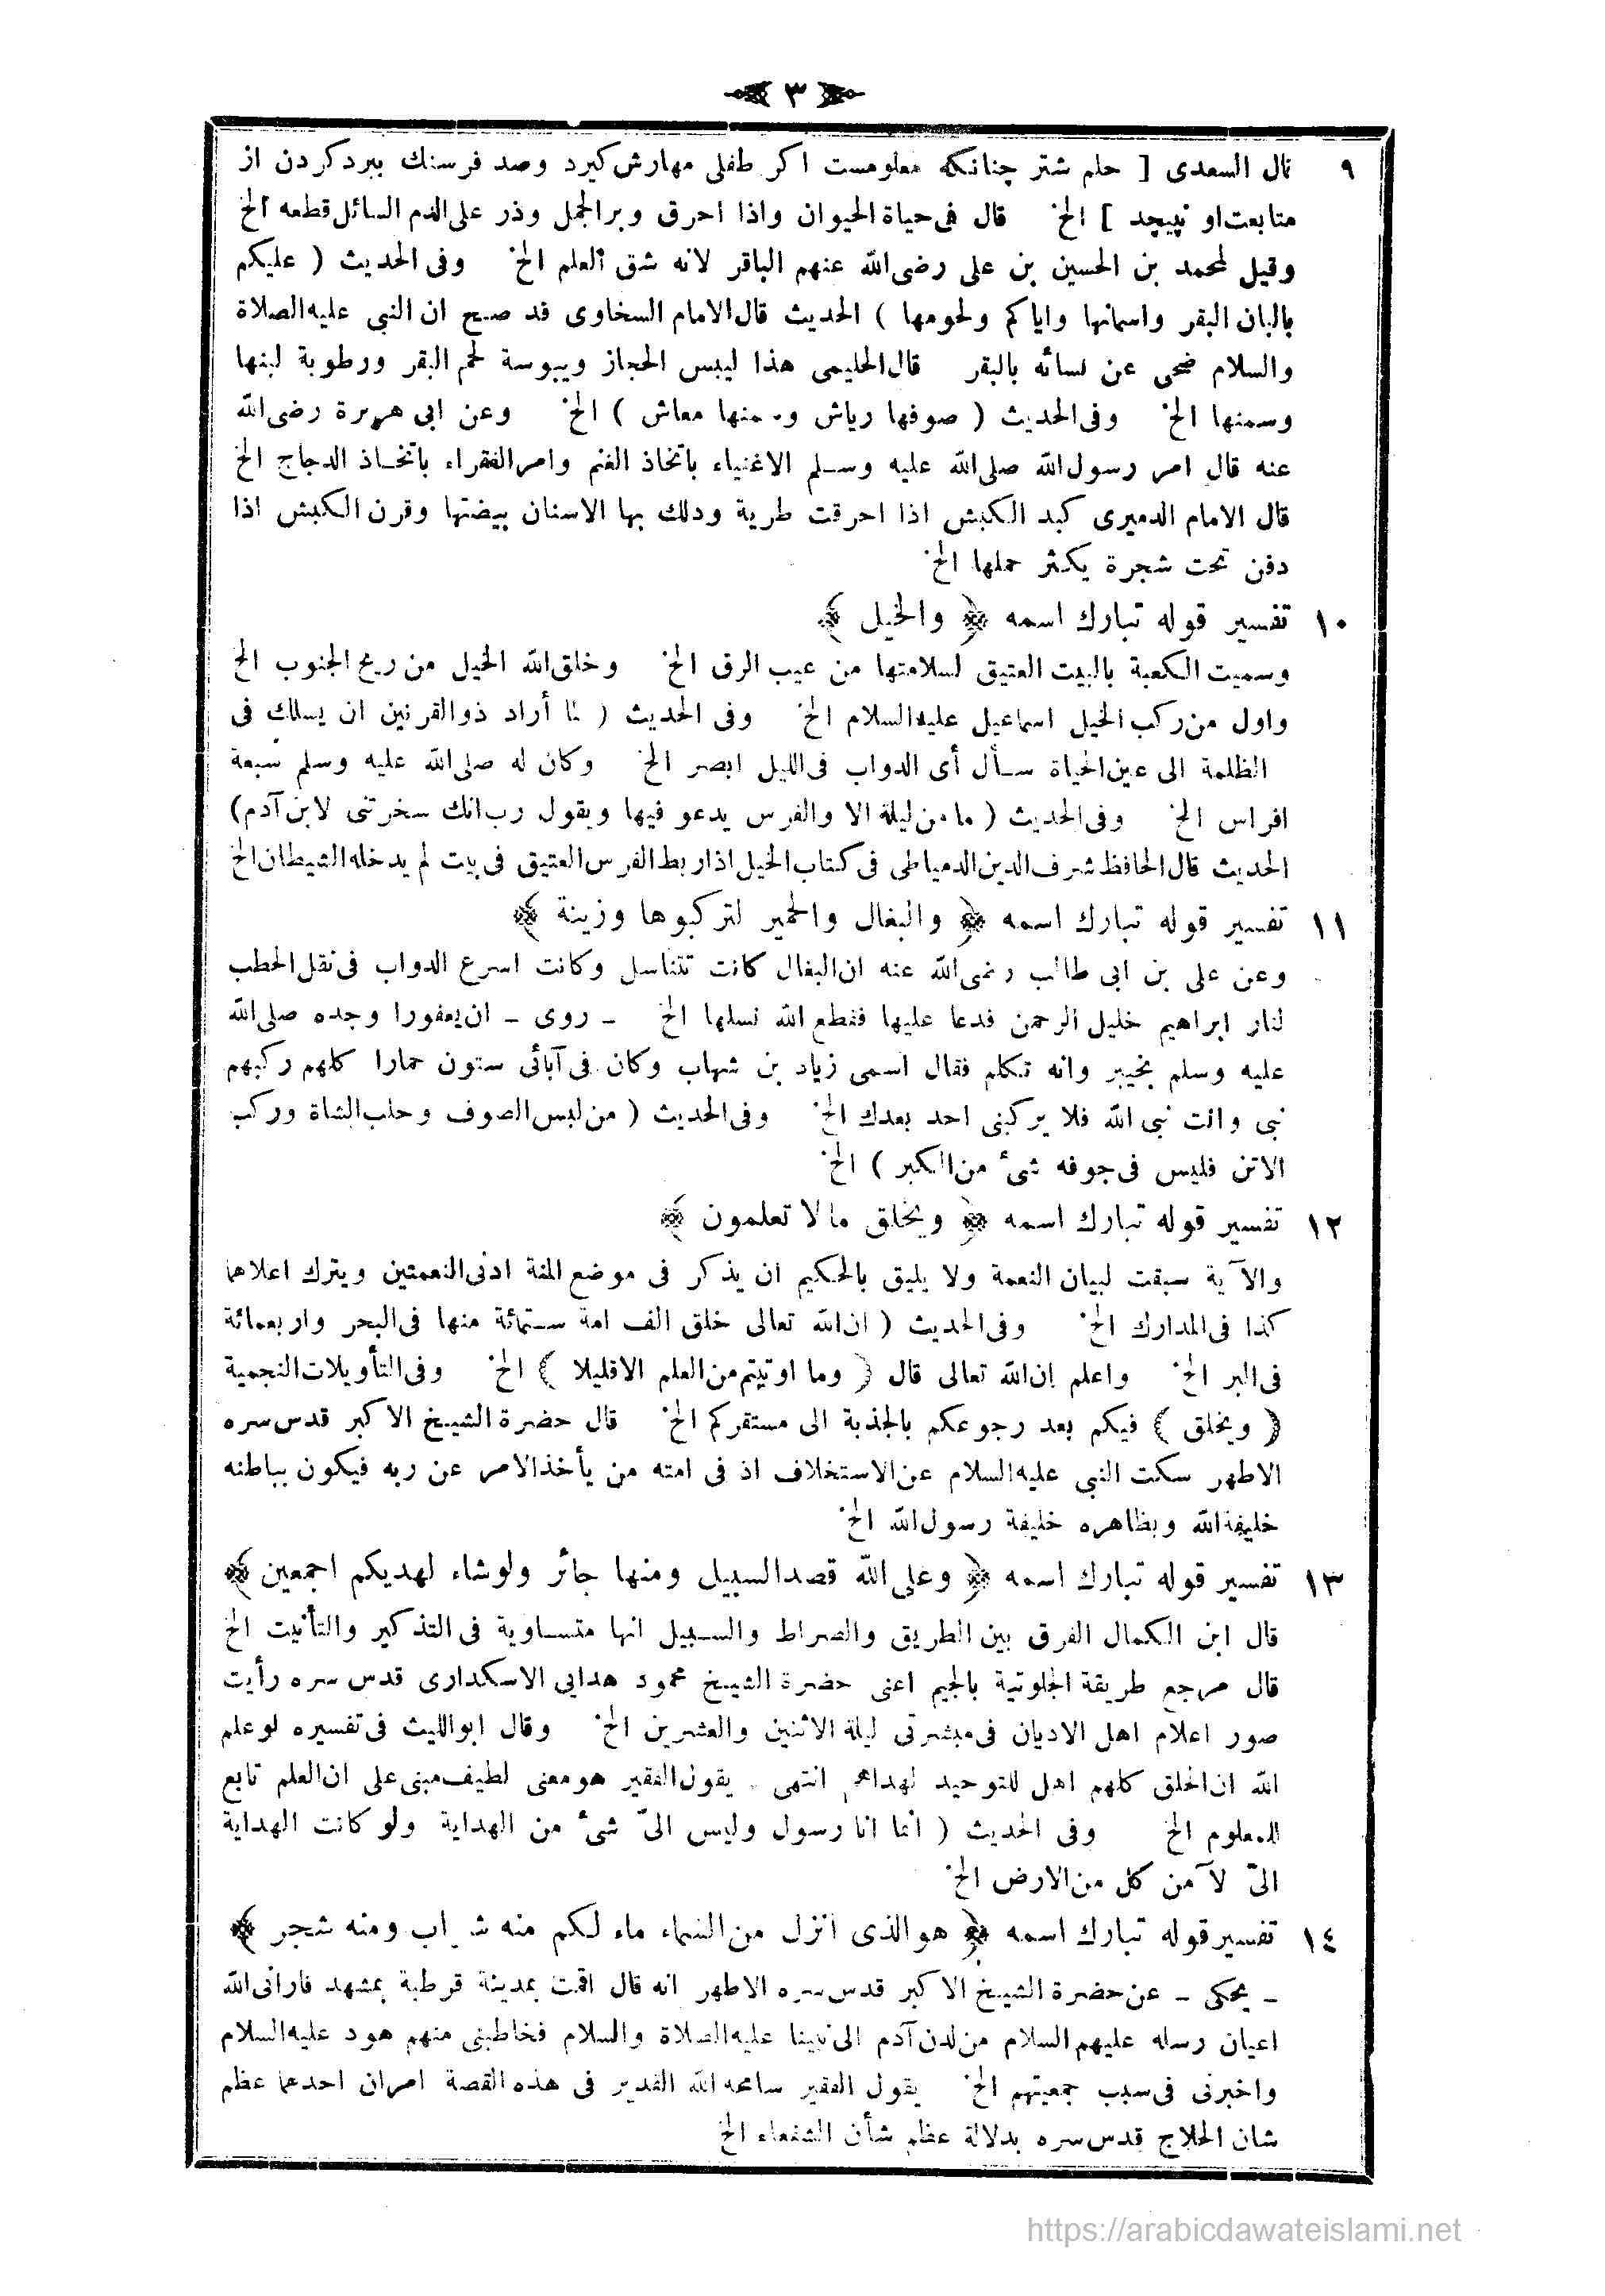 ٣
٩ قال السعدى [ حلم شتر چنانكه معلومست اكر طفلى مهارش كيرد وصد فرسنك ببرد كردن از
متابعت او نپيچد ] الخ قال فى حياة الحيوان واذا احرق وبر الجمل وذر على الدم السائل قطعه الخ
وقيل لمحمد بن الحسين بن على رضى الله عنهم الباقر لانه شق العلم الخ وفى الحديث ( عليكم
بالبان البقر واسمانها واياكم ولحومها ) الحديث قال الامام السخاوى قد صح ان النبى عليه الصلاة
والسلام ضحى عن نسائه بالبقر قال الحليمى هذا ليبس الحجاز ويبوسة لحم البقر ورطوبة لبنها
وسمنها الخ وفى الحديث ( صوفها رياش وسمنها معاش ) الخ وعن ابى هريرة رضى الله
عنه قال امر رسول الله صلى الله عليه وسلم الاغنياء باتخاذ الغنم وامر الفقراء باتخاذ الدجاج الخ
قال الامام الدميرى كبد الكبش اذا احرقت طرية ودلك بها الاسنان بيضتها وقرن الكبش اذا
دفن تحت شجرة يكثر حملها الخ
١٠ تفسير قوله تبارك اسمه ﴿ والخيل ﴾
وسميت الكعبة بالبيت العتيق لسلامتها من عيب الرق الخ وخلق الله الخيل من ريح الجنوب الخ
واول من ركب الخيل اسماعيل عليه السلام الخ وفى الحديث ( لما أراد ذو القرنين ان يسلك فى
الظلمة الى عين الحياة سأل أى الدواب فى الليل ابصر الخ وكان له صلى الله عليه وسلم سبعة
افراس الخ وفى الحديث ( ما من ليلة الا والفرس يدعو فيها ويقول رب انك سخرتنى لابن آدم)
الحديث قال الحافظ شرف الدين الدمياطى فى كتاب الخيل اذا ربط الفرس العتيق فى بيت لم يدخله الشيطان الخ
١١ تفسير قوله تبارك اسمه ﴿ والبغال والحمير لتركبوها وزينة ﴾
وعن على بن ابى طالب رضى الله عنه ان البغال كانت تتناسل وكانت اسرع الدواب فى نقل الحطب
لنار ابراهيم خليل الرحمن فدعا عليها فقطع الله نسلها الخ ـ روى ـ ان يعفورا وجده صلى الله
عليه وسلم بخيبر وانه تكلم فقال اسمى زياد بن شهاب وكان فى آبائى ستون حمارا كلهم ركبهم
نبى وانت نبى الله فلا يركبنى احد بعدك الخ وفى الحديث ( من لبس الصوف وحلب الشاة وركب
الاتن فليس فى جوفه شئ من الكبر ) الخ
١٢ تفسير قوله تبارك اسمه ﴿ ويخلق مالا تعلمون ﴾
والآية سبقت لبيان النعمة ولا يليق بالحكيم ان يذكر فى موضع المنة ادنى النعمتين ويترك اعلاهما
كذا فى المدارك الخ وفى الحديث ( ان الله تعالى خلق الف امة ستمائة منها فى البحر واربعمائة
فى البر الخ واعلم ان الله تعالى قال ( وما اوتيتم من العلم الا قليلا ) الخ وفى التأويلات النجمية
( ويخلق ) فيكم بعد رجوعكم بالجذبة الى مستقركم الخ قال حضرة الشيخ الاكبر قدس سره
الاطهر سكت النبى عليه السلام عن الاستخلاف اذ فى امته من يأخذ الامر عن ربه فيكون بباطنه
خليفة الله وبظاهره خليفة رسول الله الخ
١٣ تفسير قوله تبارك اسمه ﴿ وعلى الله قصد السبيل ومنها جائر ولو شاء لهديكم اجمعين ﴾
قال ابن الكمال الفرق بين الطريق والصراط والسبيل انها متساوية فى التذكير والتأنيث الخ
قال مرجع طريقة الجلوتية بالجيم اعنى حضرة الشيخ محمود هدايى الاسكدارى قدس سره رأيت
صور اعلام اهل الاديان فى مبشرتى ليلة الاثنين والعشرين الخ وقال ابو الليث فى تفسيره لو علم
الله ان الخلق كلهم اهل للتوحيد لهداهم انتهى . يقول الفقير هو معنى لطيف مبنى على ان العلم تابع
للمعلوم الخ وفى الحديث ( انما انا رسول وليس الىّ شئ من الهداية ولو كانت الهداية
الىّ لآمن كل من الارض الخ
١٤ تفسير قوله تبارك اسمه ﴿ هو الذى انزل من السماء ماء لكم منه شراب ومنه شجر ﴾
ـ يحكى ـ عن حضرة الشيخ الاكبر قدس سره الاطهر انه قال اقمت بمدينة قرطبة بمشهد فارانى الله
اعيان رسله عليهم السلام من لدن آدم الى نبينا عليه الصلاة والسلام فخاطبنى منهم هود عليه السلام
واخبرنى فى سبب جمعيتهم الخ يقول الفقير سامحه الله القدير فى هذه القصة امران احدهما عظم
شان الحلاج قدس سره بدلالة عظم شأن الشفعاء الخ
https://arabicdawateislami.net